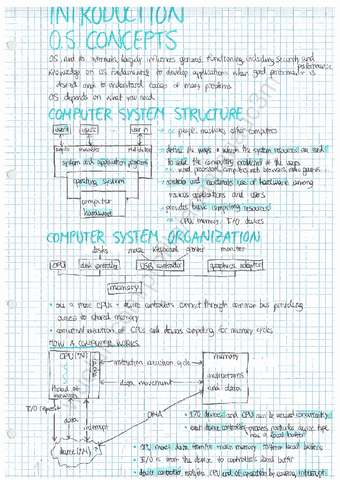 INTRODUCTION
O.S. CONCEPTS
OS, and its internals, largely influences general functioning, including security and performance
knowledge on OS fundamentals to develop applications when good performance is
desired and to understand causes of many problems
OS depends on what you need
COMPUTER SYSTEM STRUCTURE
user 1 user 2 user n
→ people, machines, other computers
system and application programs
→ define the ways in which the system resources are used
to solve the computing problems of the users
word processors, compilers, web browsers, video games...
operating system
→ controls and coordinates use of hardware among
various applications and users
computer
hardware
→ provides basic computing resources
CPU, memory, I/O devices
COMPUTER SYSTEM ORGANIZATION
disks mouse keyboard printer monitor
CPU disk controller USB controller graphics adapter
memory
• one or more CPUs + device controllers connect through common bus providing
access to shared memory
• concurrent execution of CPUs and devices competing for memory cycles
HOW A COMPUTER WORKS
CPU (*N) cache instruction execution cycle memory
data movement instructions
and data
thread of
execution
I/O request data interrupt DMA
device (*M)
• I/O devices and CPU can be executed concurrently
• each device controller manages particular device type
has a local buffer
• CPU moves data from/to main memory to/from local buffers
• I/O is from the device to controller's local buffer
• device controller notifies CPU end of operation by causing interrupt